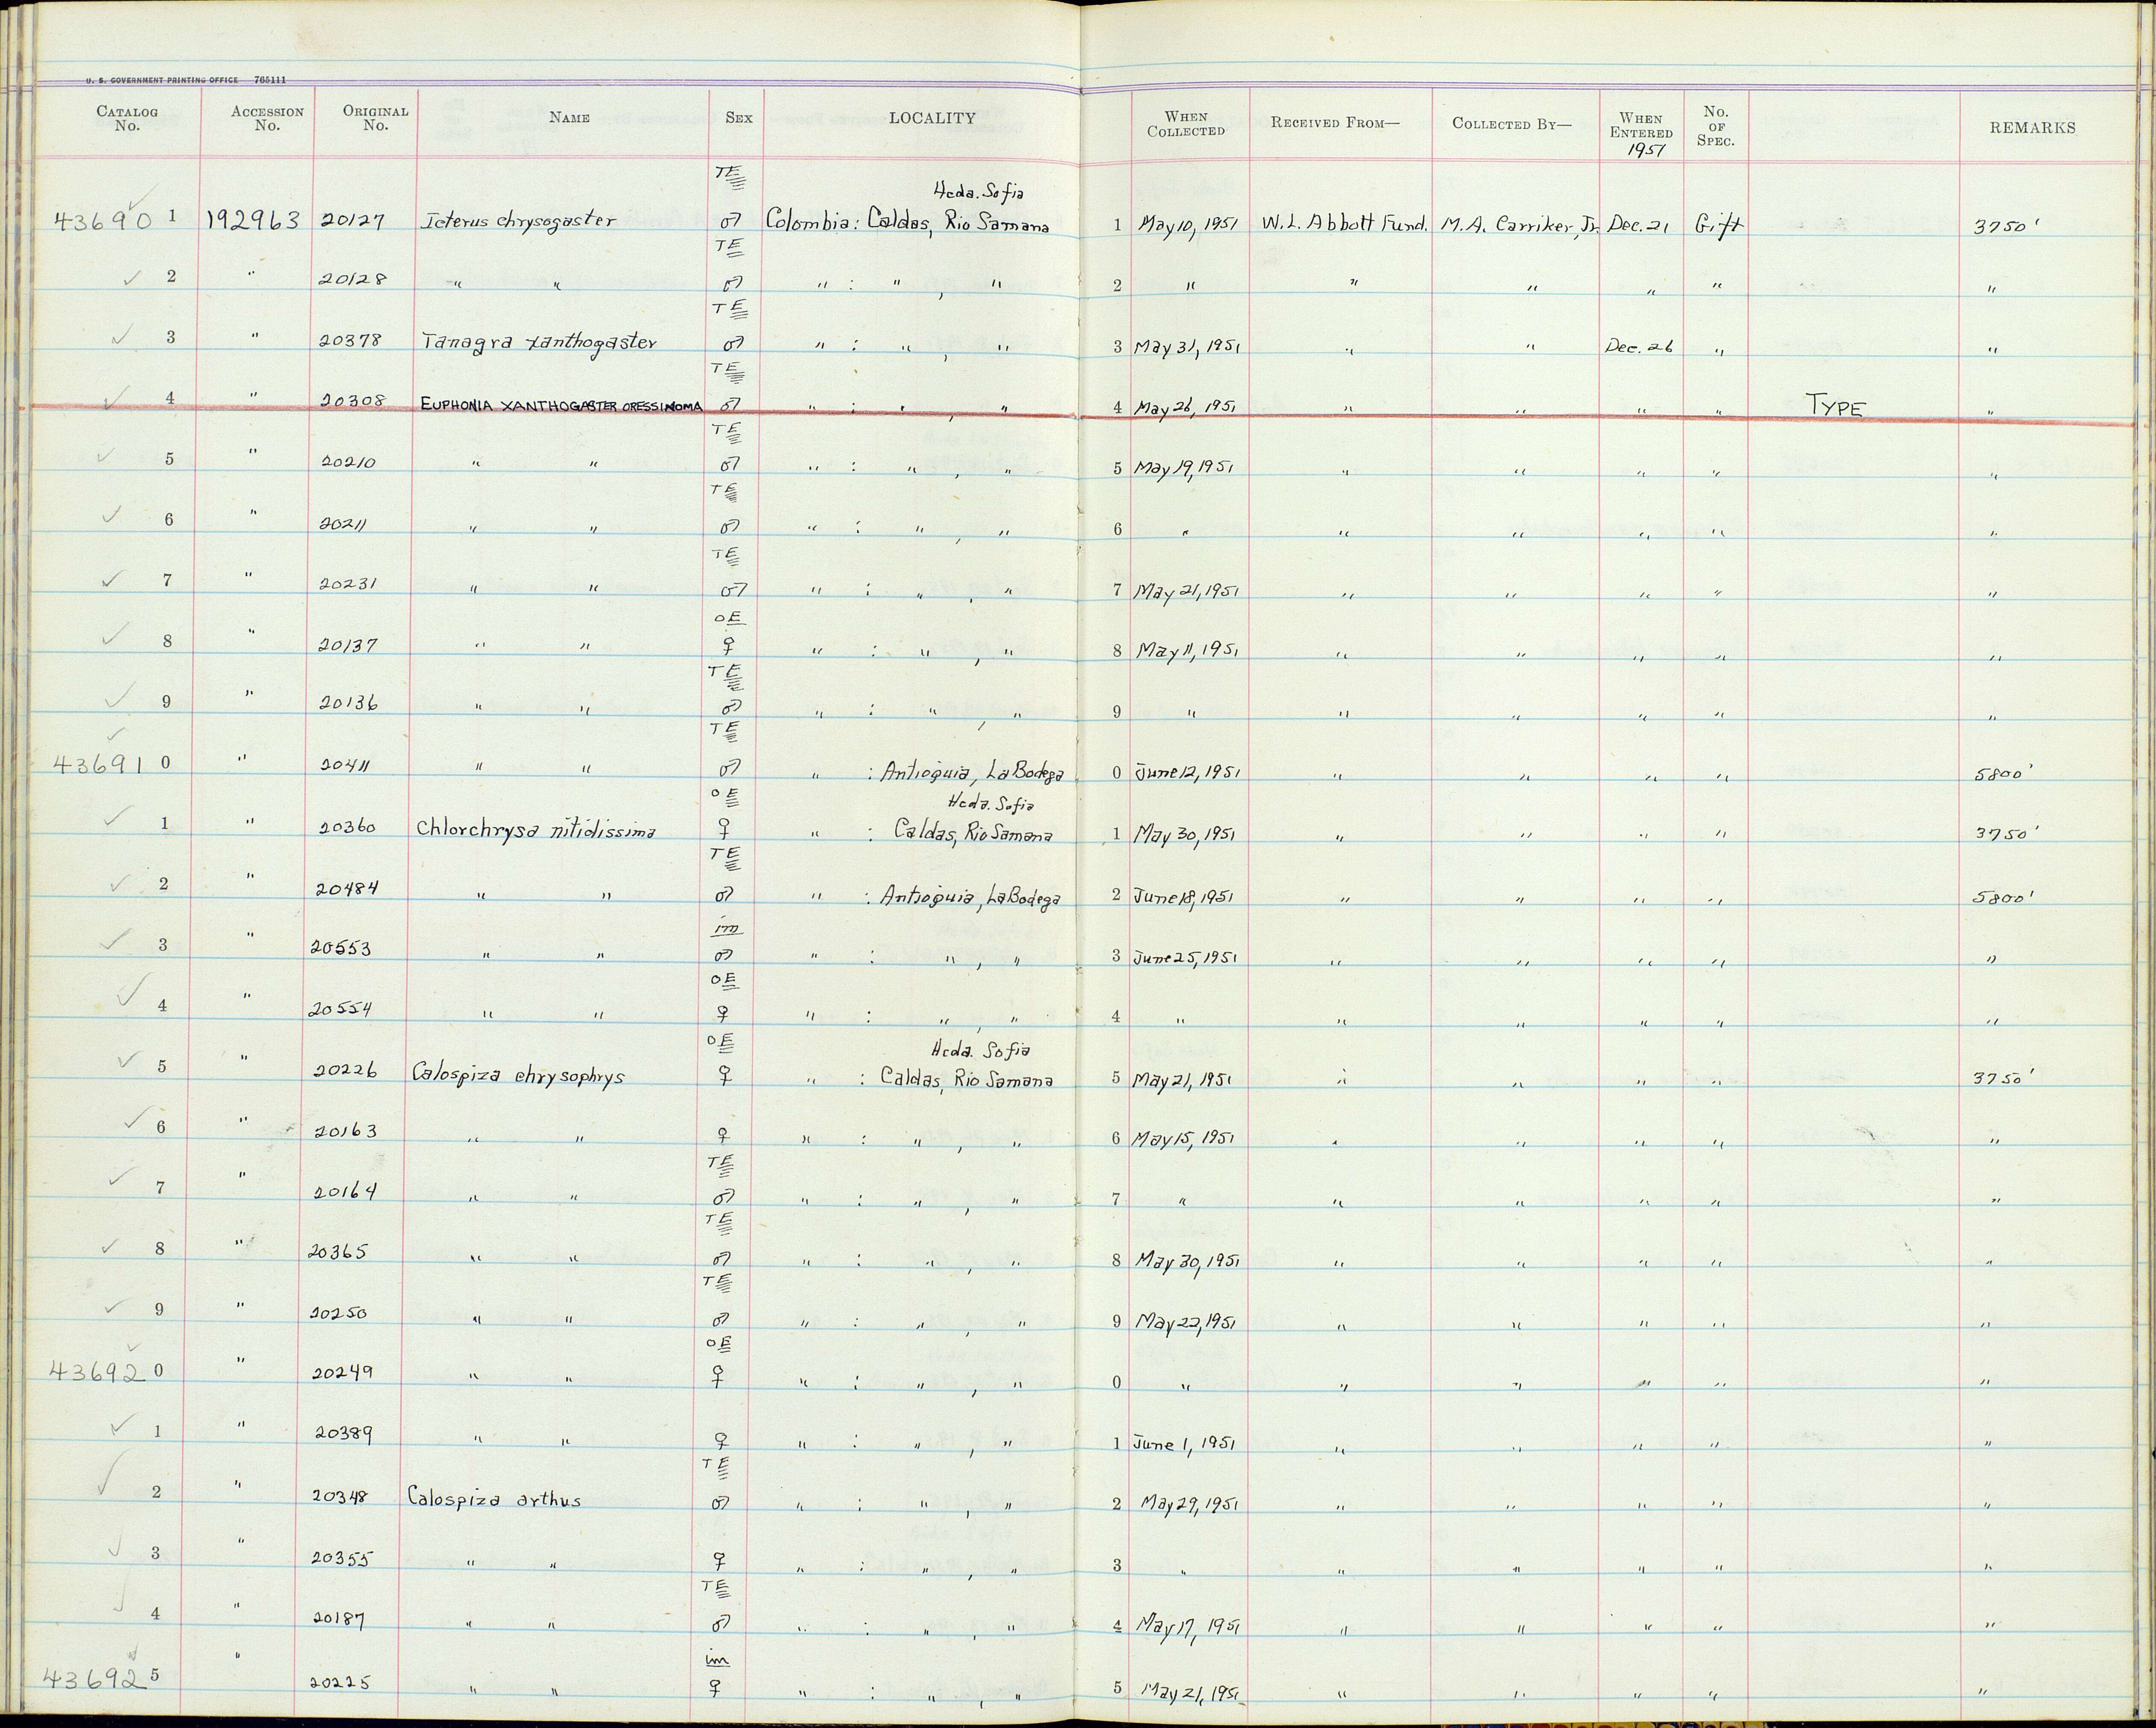 U. S. GOVERNMENT PRINTING OFFICE 765111
CATALOG No. ACCESSION No. ORIGINAL No. NAME SEX LOCALITY WHEN COLLECTED RECEIVED FROM— COLLECTED BY— WHEN ENTERED 1951 No. OF SPEC. REMARKS
TE Hcda. Sofia
43690 1 192963 20127 Icterus chrysogaster ♂ Colombia: Caldas, Rio Samana 1 May 10, 1951 W.L. Abbott Fund. M.A. Carriker, Jr. Dec. 21 Gift 3750'
TE
2 " 20128 " " ♂ " : " , " 2 " " " " " "
TE
3 " 20378 Tanagra xanthogaster ♂ " : " , " 3 May 31, 1951 " " Dec. 26 " "
TE
4 " 20308 EUPHONIA XANTHOGASTER ORESSINOMA ♂ " : " , " 4 May 26, 1951 " " " " TYPE "
TE
5 " 20210 " " ♂ " : " , " 5 May 19, 1951 " " " " "
TE
6 " 20211 " " ♂ " : " , " 6 " " " " " "
TE
7 " 20231 " " ♂ " : " , " 7 May 21, 1951 " " " " "
OE
8 " 20137 " " ♀ " : " , " 8 May 11, 1951 " " " " "
TE
9 " 20136 " " ♂ " : " , " 9 " " " " " "
TE
43691 0 " 20411 " " ♂ " : Antioquia, La Bodega 0 June 12, 1951 " " " " 5800'
OE Hcda. Sofia
1 " 20360 Chlorchrysa nitidissima ♀ " : Caldas, Rio Samana 1 May 30, 1951 " " " " 3750'
TE
2 " 20484 " " ♂ " : Antioquia, La Bodega 2 June 18, 1951 " " " " 5800'
im
3 " 20553 " " ♂ " : " , " 3 June 25, 1951 " " " " "
OE
4 " 20554 " " ♀ " : " , " 4 " " " " " "
OE Hcda. Sofia
5 " 20226 Calospiza chrysophrys ♀ " : Caldas, Rio Samana 5 May 21, 1951 " " " " 3750'
6 " 20163 " " ♀ " : " , " 6 May 15, 1951 " " " " "
TE
7 " 20164 " " ♂ " : " , " 7 " " " " " "
TE
8 " 20365 " " ♂ " : " , " 8 May 30, 1951 " " " " "
TE
9 " 20250 " " ♂ " : " , " 9 May 22, 1951 " " " " "
OE
43692 0 " 20249 " " ♀ " : " , " 0 " " " " " "
1 " 20389 " " ♀ " : " , " 1 June 1, 1951 " " " " "
TE
2 " 20348 Calospiza arthus ♂ " : " , " 2 May 29, 1951 " " " " "
3 " 20355 " " ♀ " : " , " 3 " " " " " "
TE
4 " 20187 " " ♂ " : " , " 4 May 17, 1951 " " " " "
im
43692 5 " 20225 " " ♀ " : " , " 5 May 21, 1951 " " " " "